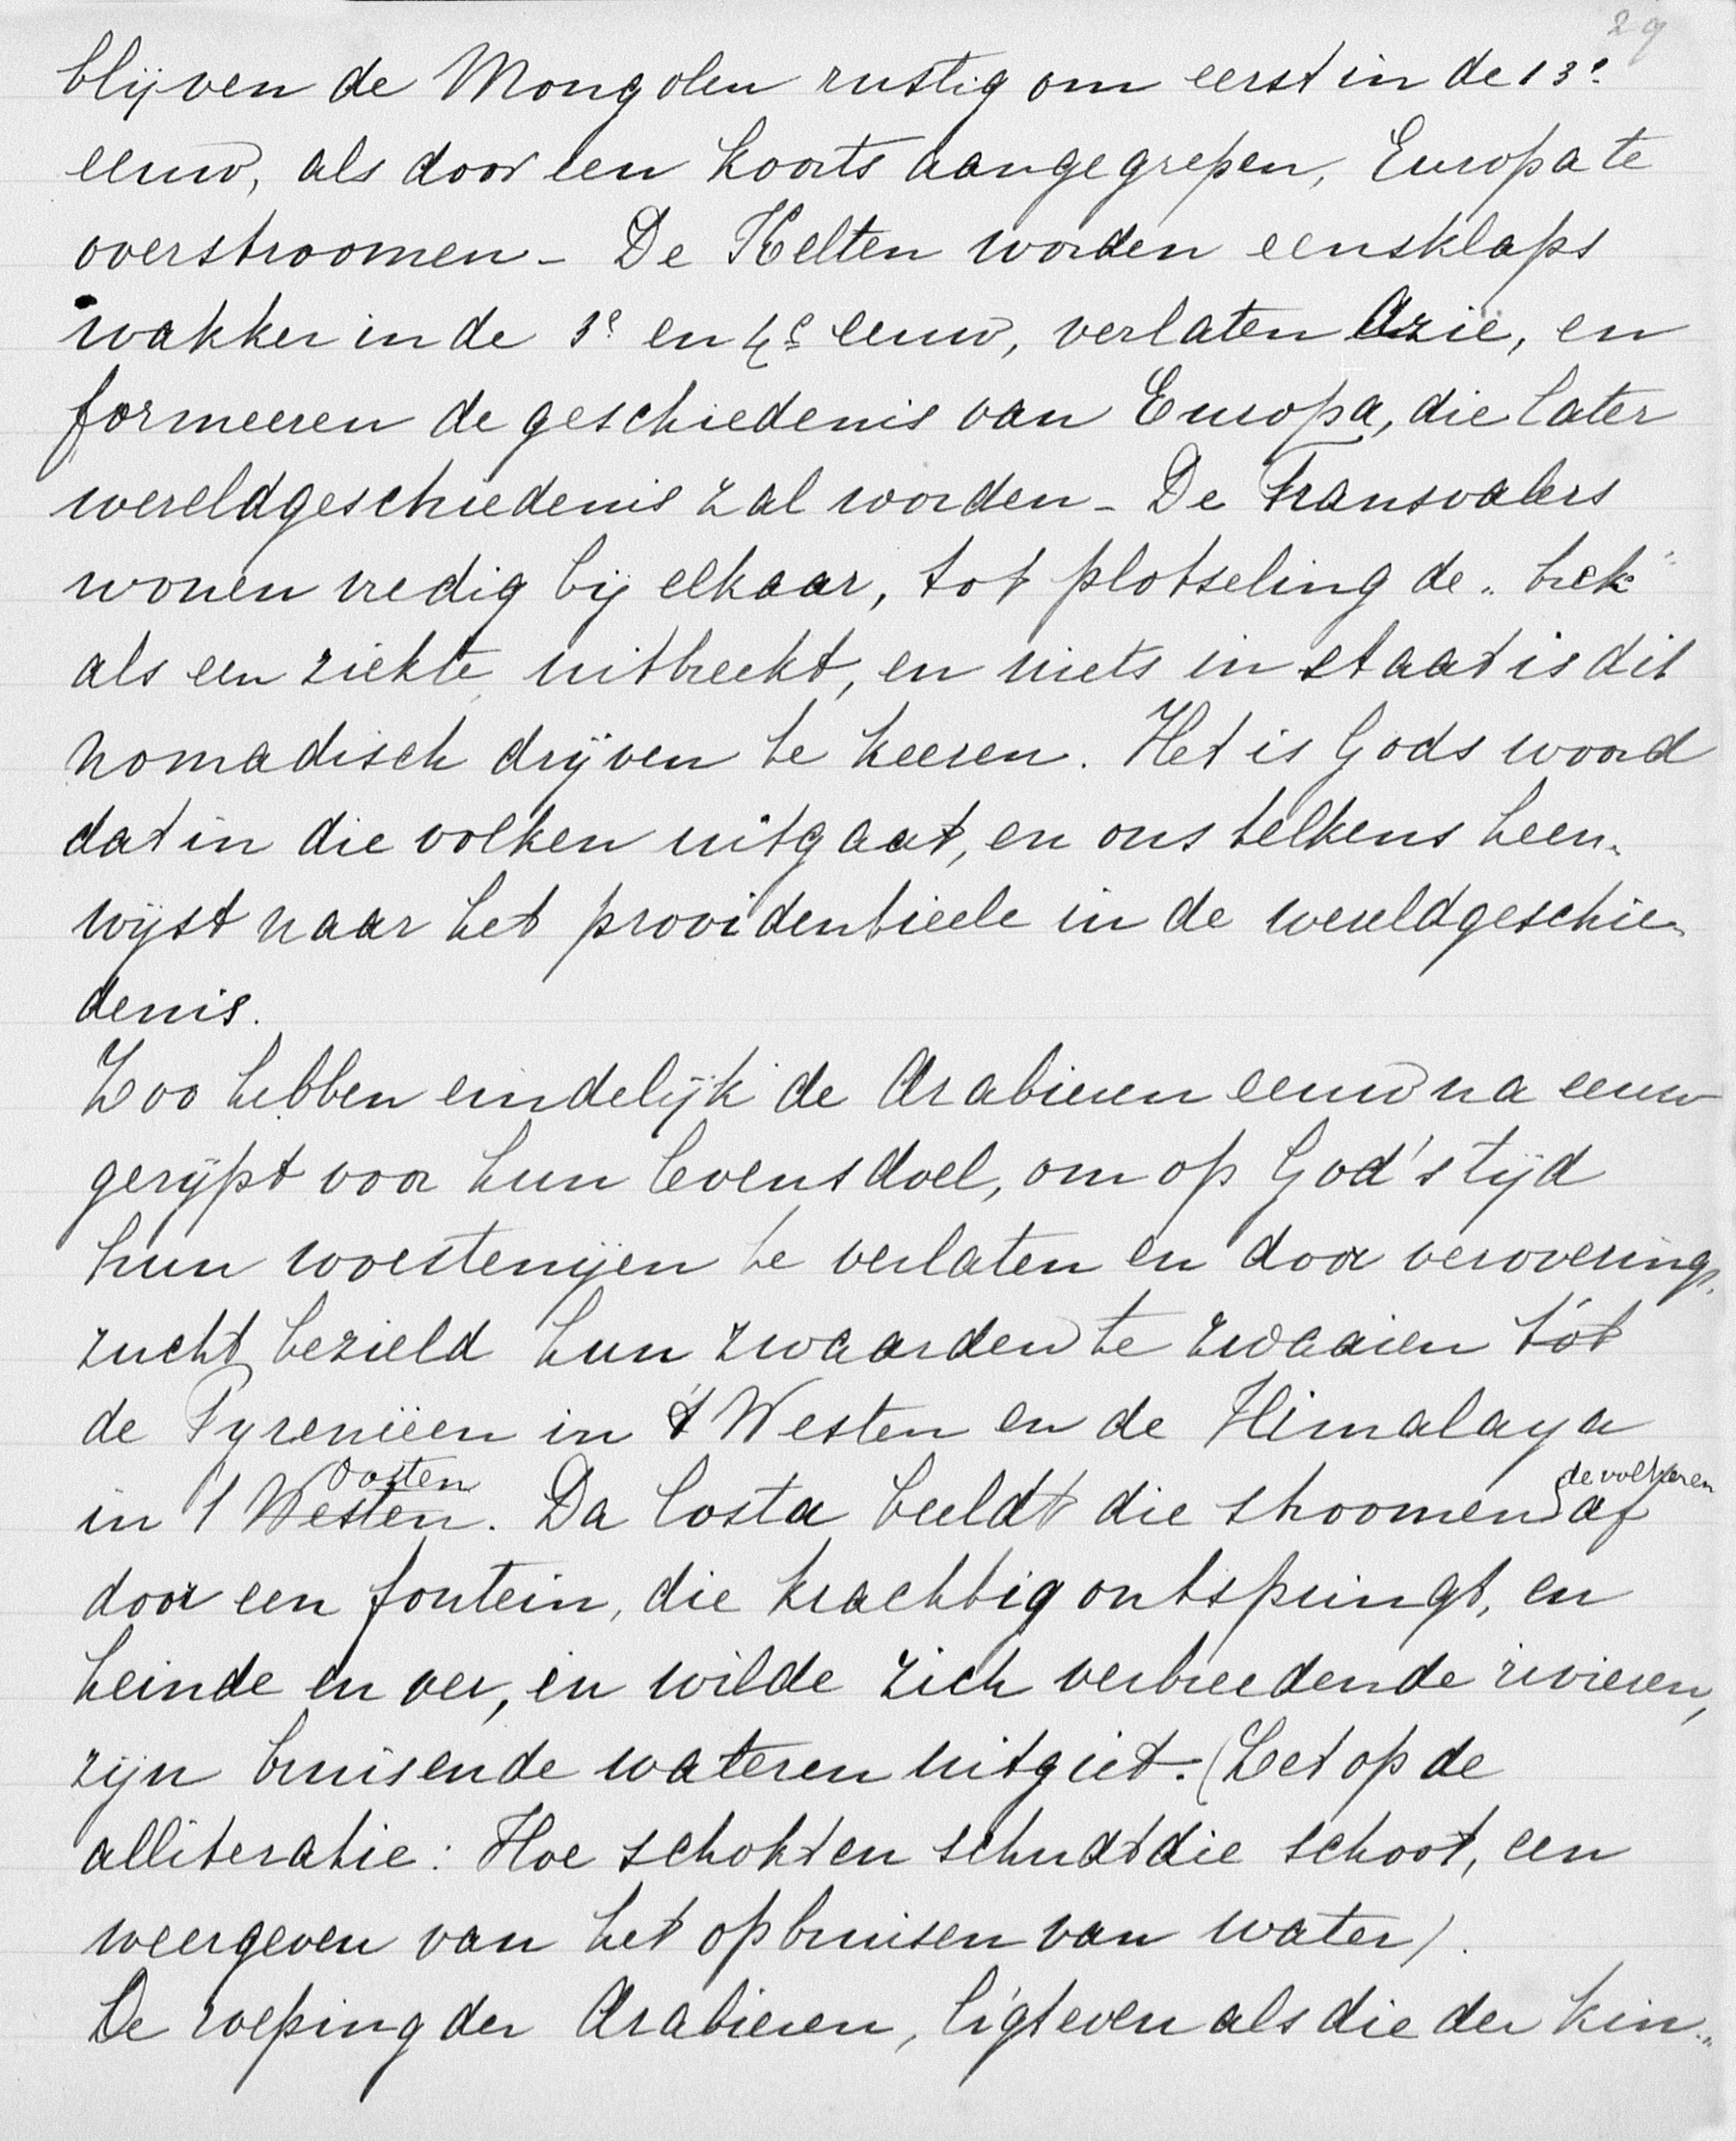 29
blijven de Mongolen rustig om eerst in de 13e
eeuw, als door een koorts aangegrepen, Europa te
overstroomen - De Kelten worden eensklaps
wakker in de 3e en 4e eeuw, verlaten Azië, en
formeeren de geschiedenis van Europa, die later
wereldgeschiedenis zal worden - De Transvalers
wonen vredig bij elkaar, tot plotseling de „trek"
als een ziekte uitbreekt, en niets in staat is dit
nomadisch drijven te keeren. Het is Gods woord
dat in die volken uitgaat, en ons telkens heen-
wijst naar het providentieele in de wereldgeschie-
denis.
Zoo hebben eindelijk de Arabieren eeuw na eeuw
gerijpt voor hun levensdoel, om op God's tijd
hun woestenijen te verlaten en door verovering-
zucht bezield hun zwaarden te zwaaien tot
de Pyrenieën in 't Westen en de Himalaya
in 't Westen Oosten. Da Costa beeldt die stroomen de volkeren af
door een fontein, die krachtig ontspringt, en
heinde en ver, in wilde zich verbreedende rivieren,
zijn bruisende wateren uitgiet. (Let op de
alliteratie: Hoe schokt en schudt die schoot, een
weergeven van het opbruisen van water).
De roeping der Arabieren, ligt even als die der kin-